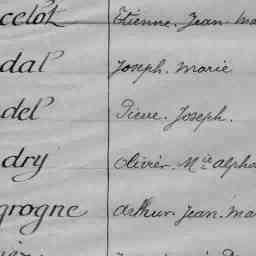 celot Etienne. Jean. Ma
dal Joseph. Marie
del Pierre. Joseph.
dry Olivier. Mie Alpho
grogne Arthur. Jean. Ma